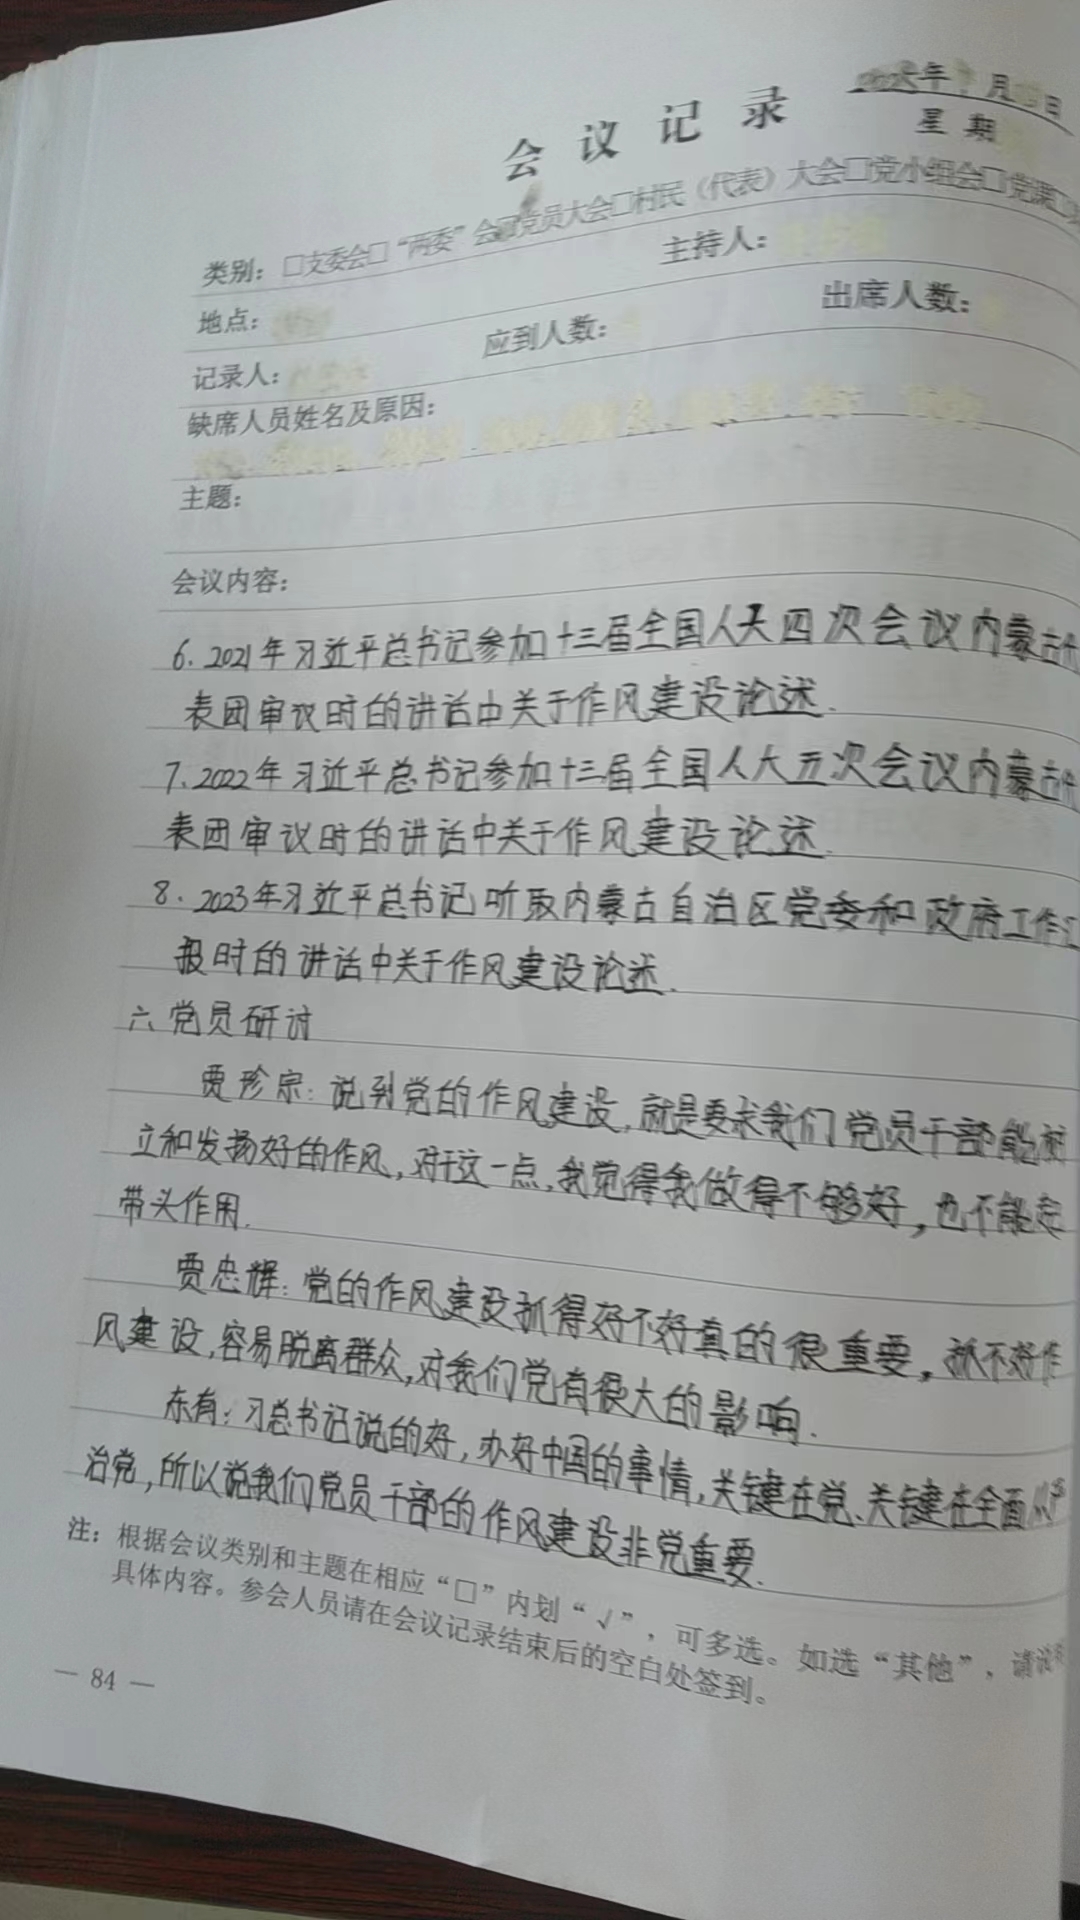 年 月 日
会议记录
星期
类别：□支委会□“两委”会☑党员大会□村民（代表）大会□党小组会□党课□
地点： 主持人：
记录人： 应到人数： 出席人数：
缺席人员姓名及原因：
主题：
会议内容：
6. 2021年习近平总书记参加十三届全国人大四次会议内蒙古代
表团审议时的讲话中关于作风建设论述.
7. 2022年习近平总书记参加十三届全国人大五次会议内蒙古代
表团审议时的讲话中关于作风建设论述.
8. 2023年习近平总书记听取内蒙古自治区党委和政府工作汇
报时的讲话中关于作风建设论述.
六 党员研讨
贾珍宗：说到党的作风建设，就是要求我们党员干部能树
立和发扬好的作风，对于这一点，我觉得我做得不够好，也不能起
带头作用.
贾忠辉：党的作风建设抓得好不好真的很重要，抓不好作
风建设，容易脱离群众，对我们党有很大的影响.
东有：习总书记说的好，办好中国的事情，关键在党、关键在全面从严
治党，所以说我们党员干部的作风建设非党重要.
注：根据会议类别和主题在相应“□”内划“√”，可多选。如选“其他”，请注明
具体内容。参会人员请在会议记录结束后的空白处签到。
— 84 —